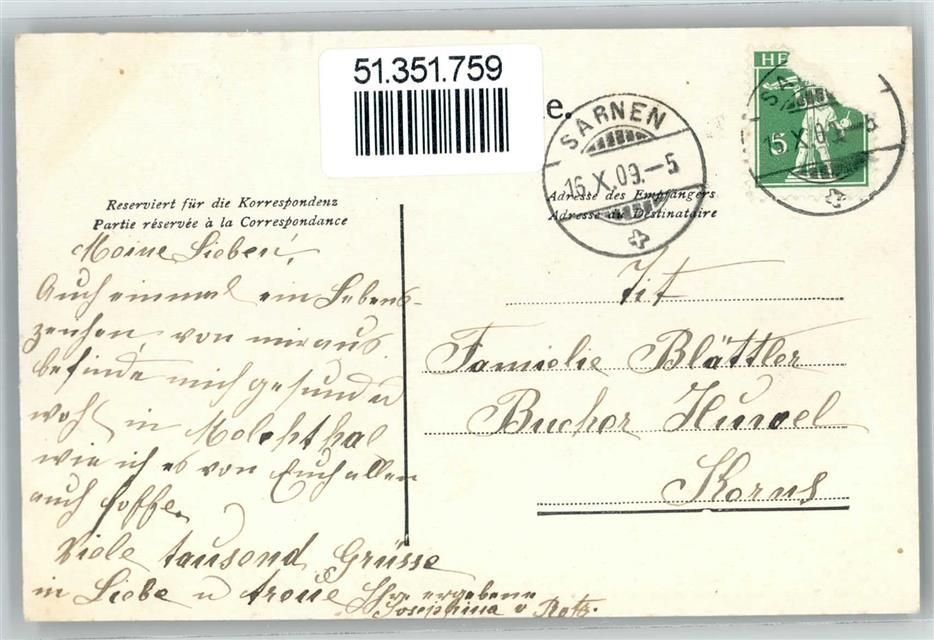 51.351.759
e.
SARNEN
16.X.09.-5
HE
SA
16.X.09.-5
5
Reserviert für die Korrespondenz
Partie réservée à la Correspondance
Adresse des Empfängers
Adresse du Destinataire
Meine Lieben!
Auch einmal ein Lebens-
zeichen von mir aus
befinde mich gesund u
wohl in Melchthal
wie ich es von Euch allen
auch hoffe.
Viele tausend Grüsse
in Liebe u treue Ihre ergebene
Josephina v Rotz.
Tit
Familie Blättler
Kerns